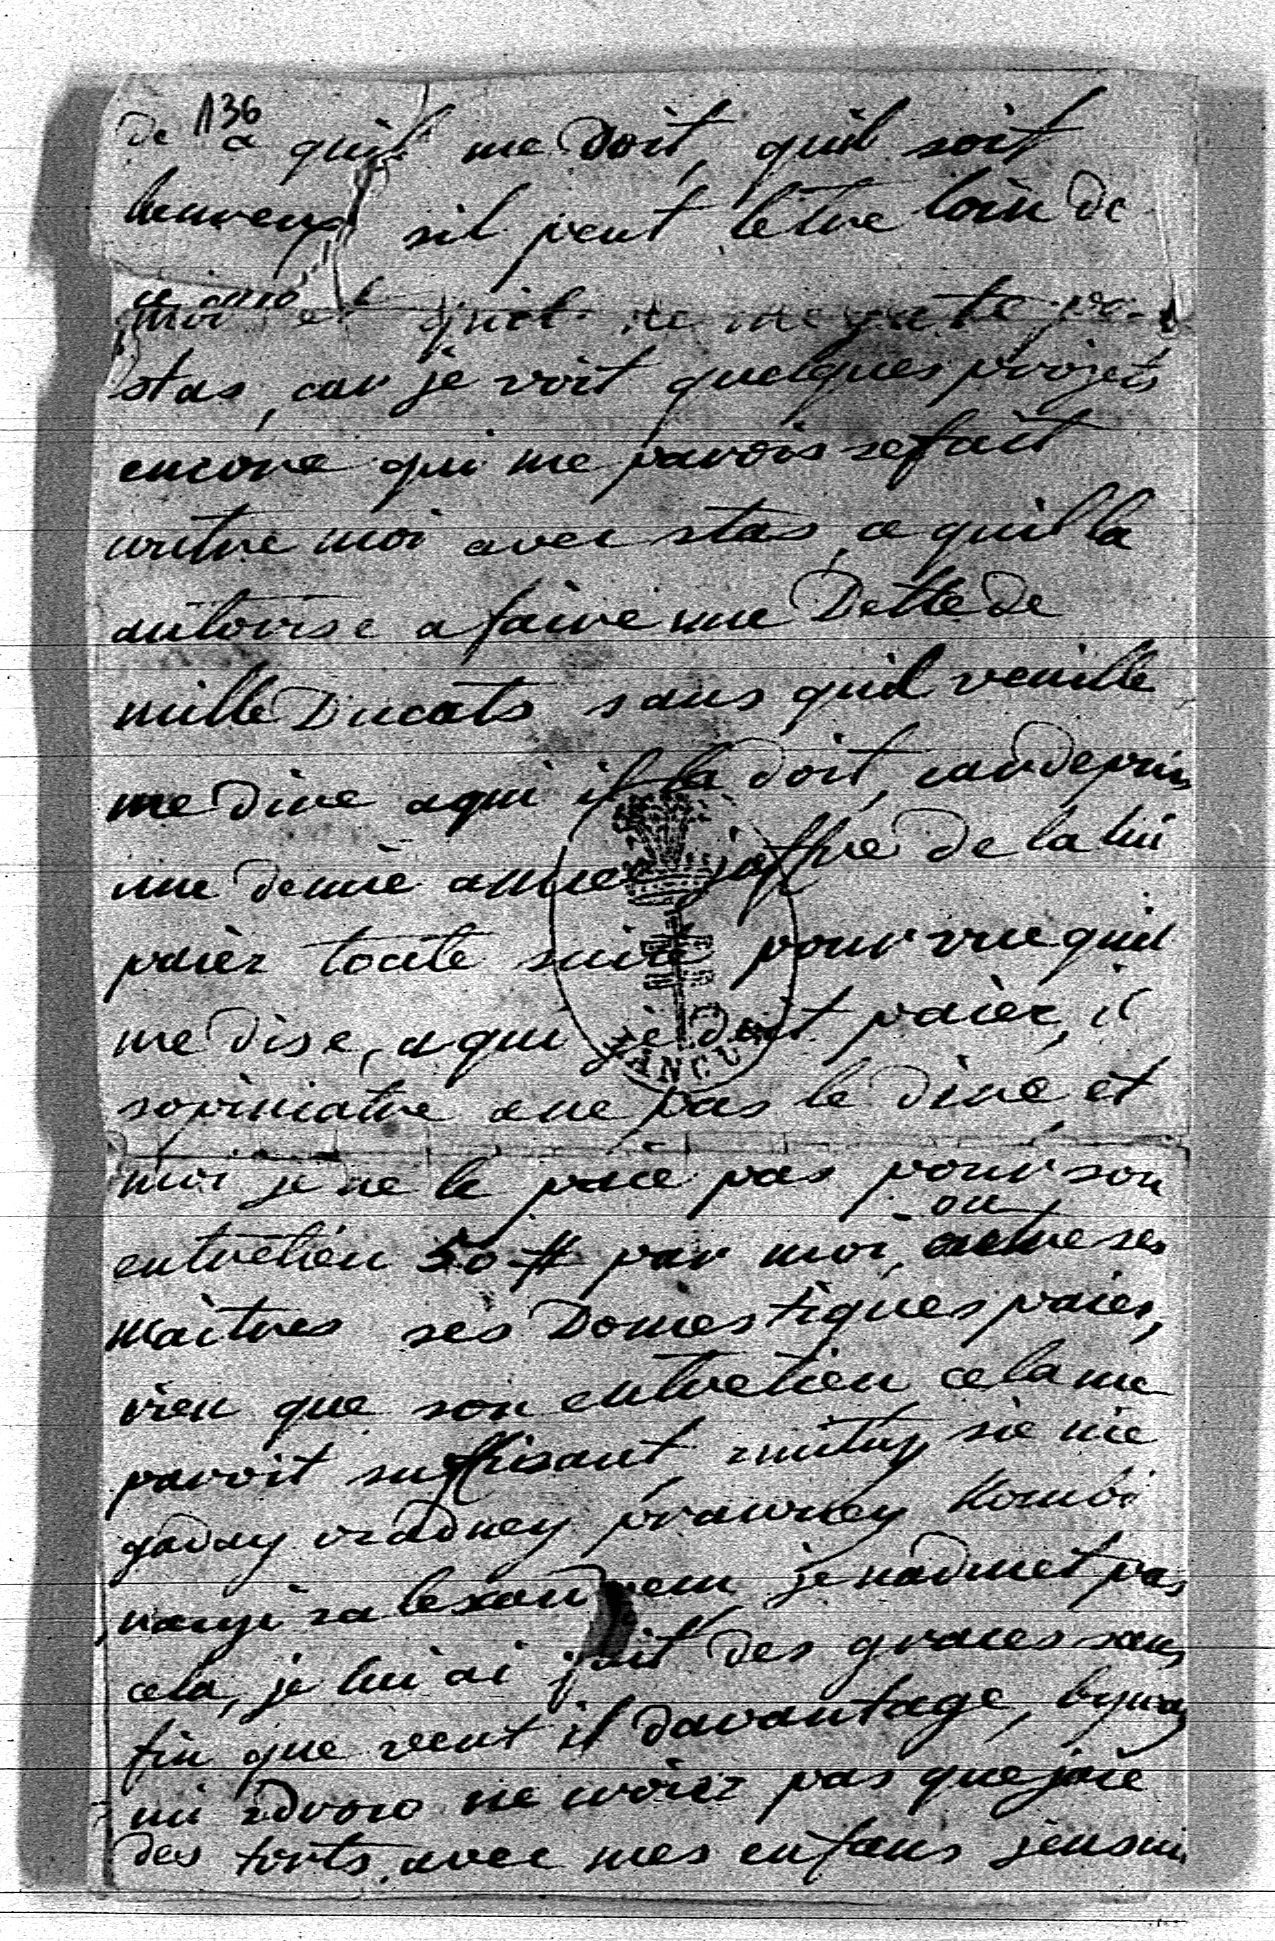 136
de a quil me Doit, quil soit
heureux sil peut letre loin de
moi et quil ne me gate pa
stas, car je voit quelques projets
encore qui me parois se fait
contre moi avec stas, a quil la
autorise a faire une Dette de
mille Ducats sans quil veuille
me dire a qui il la doit, car depuis
une demie annee joffre de la lui
paièr toute suite pour vue quil
me dise, a qui je doit paièr, il
sopiniatre a ne pas le dire et
moi je ne le paie pas pour son
entretien 50 # par moi, outre ses
maitres ses Domestiques paies,
rien que son entretien cela me
paroit suffisant sie nie
gaday zadney prawney
je nadmet pas
cela, je lui ai fait des graces sans
fin que veut il davantage, byway
mi zdrow ne croiez pas que jaie
des torts avec mes enfans jensui